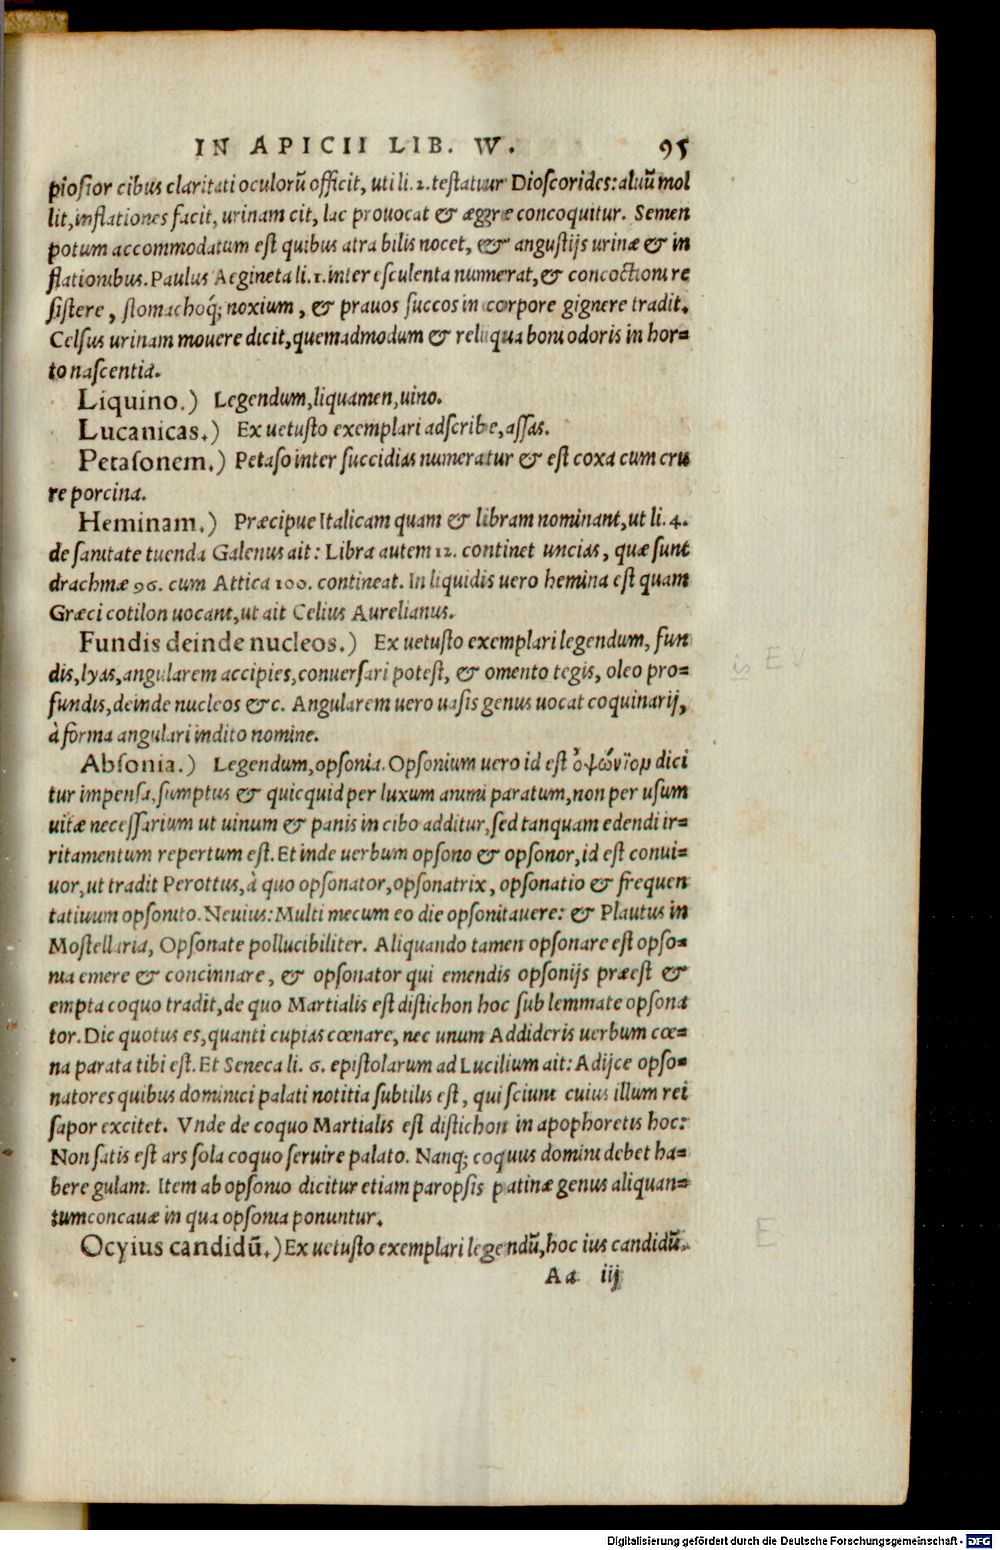 IN APICII LIB. W. 95
piosior cibus claritati oculorũ officit, uti li. 2. testatur Dioscorides: aluũ mol
lit, inflationes facit, urinam cit, lac prouocat & ægre concoquitur. Semen
potum accommodatum est quibus atra bilis nocet, & angustijs urinæ & in
flationibus. Paulus Aegineta li. 1. inter esculenta numerat, & concoctioni re
sistere, stomachoq́; noxium, & prauos succos in corpore gignere tradit.
Celsus urinam mouere dicit, quemadmodum & reliqua boni odoris in hor=
to nascentia.
Liquino.) Legendum, liquamen, uino.
Lucanicas.) Ex uetusto exemplari adscribe, assas.
Petasonem.) Petaso inter succidias numeratur & est coxa cum cru
re porcina.
Heminam.) Præcipue Italicam quam & libram nominant, ut li. 4.
de sanitate tuenda Galenus ait: Libra autem 12. continet uncias, quæ sunt
drachmæ 96. cum Attica 100. contineat. In liquidis uero hemina est quam
Græci cotilon uocant, ut ait Celius Aurelianus.
Fundis deinde nucleos.) Ex uetusto exemplari legendum, fun
dis, lyas, angularem accipies, conuersari potest, & omento tegis, oleo pro=
fundis, deinde nucleos &c. Angularem uero uasis genus uocat coquinarij,
à forma angulari indito nomine.
Absonia.) Legendum, opsonia. Opsonium uero id est ὀψώνϊομ dici
tur impensa, sumptus & quicquid per luxum animi paratum, non per usum
uitæ necessarium ut uinum & panis in cibo additur, sed tanquam edendi ir=
ritamentum repertum est. Et inde uerbum opsono & opsonor, id est conui=
uor, ut tradit Perottus, à quo opsonator, opsonatrix, opsonatio & frequen
tatiuum opsonito. Neuius: Multi mecum eo die opsonitauere: & Plautus in
Mostellaria, Opsonate pollucibiliter. Aliquando tamen opsonare est opso=
nia emere & concinnare, & opsonator qui emendis opsonijs præest &
empta coquo tradit, de quo Martialis est distichon hoc sub lemmate opsona
tor. Dic quotus es, quanti cupias cœnare, nec unum Addideris uerbum cœ=
na parata tibi est. Et Seneca li. 6. epistolarum ad Lucilium ait: Adijce opso=
natores quibus dominici palati notitia subtilis est, qui sciunt cuius illum rei
sapor excitet. Vnde de coquo Martialis est distichon in apophoretis hoc:
Non satis est ars sola coquo seruire palato. Nanq; coquus domini debet ha=
bere gulam. Item ab opsonio dicitur etiam paropsis patinæ genus aliquan=
tum concauæ in qua opsonia ponuntur.
Ocyius candidũ.) Ex uetusto exemplari legendũ, hoc ius candidũ.
Aa iij
E
Digitalisierung gefördert durch die Deutsche Forschungsgemeinschaft - DFG